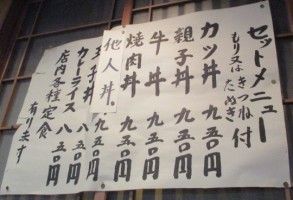 セットメニュー
もり又はきつね付
たぬき
カツ丼 九五〇円
親子丼 九五〇円
牛丼 九五〇円
焼肉丼 九五〇円
他人丼 九五〇円
玉子丼 八五〇円
カレーライス 八五〇円
店内各種定食
有ります